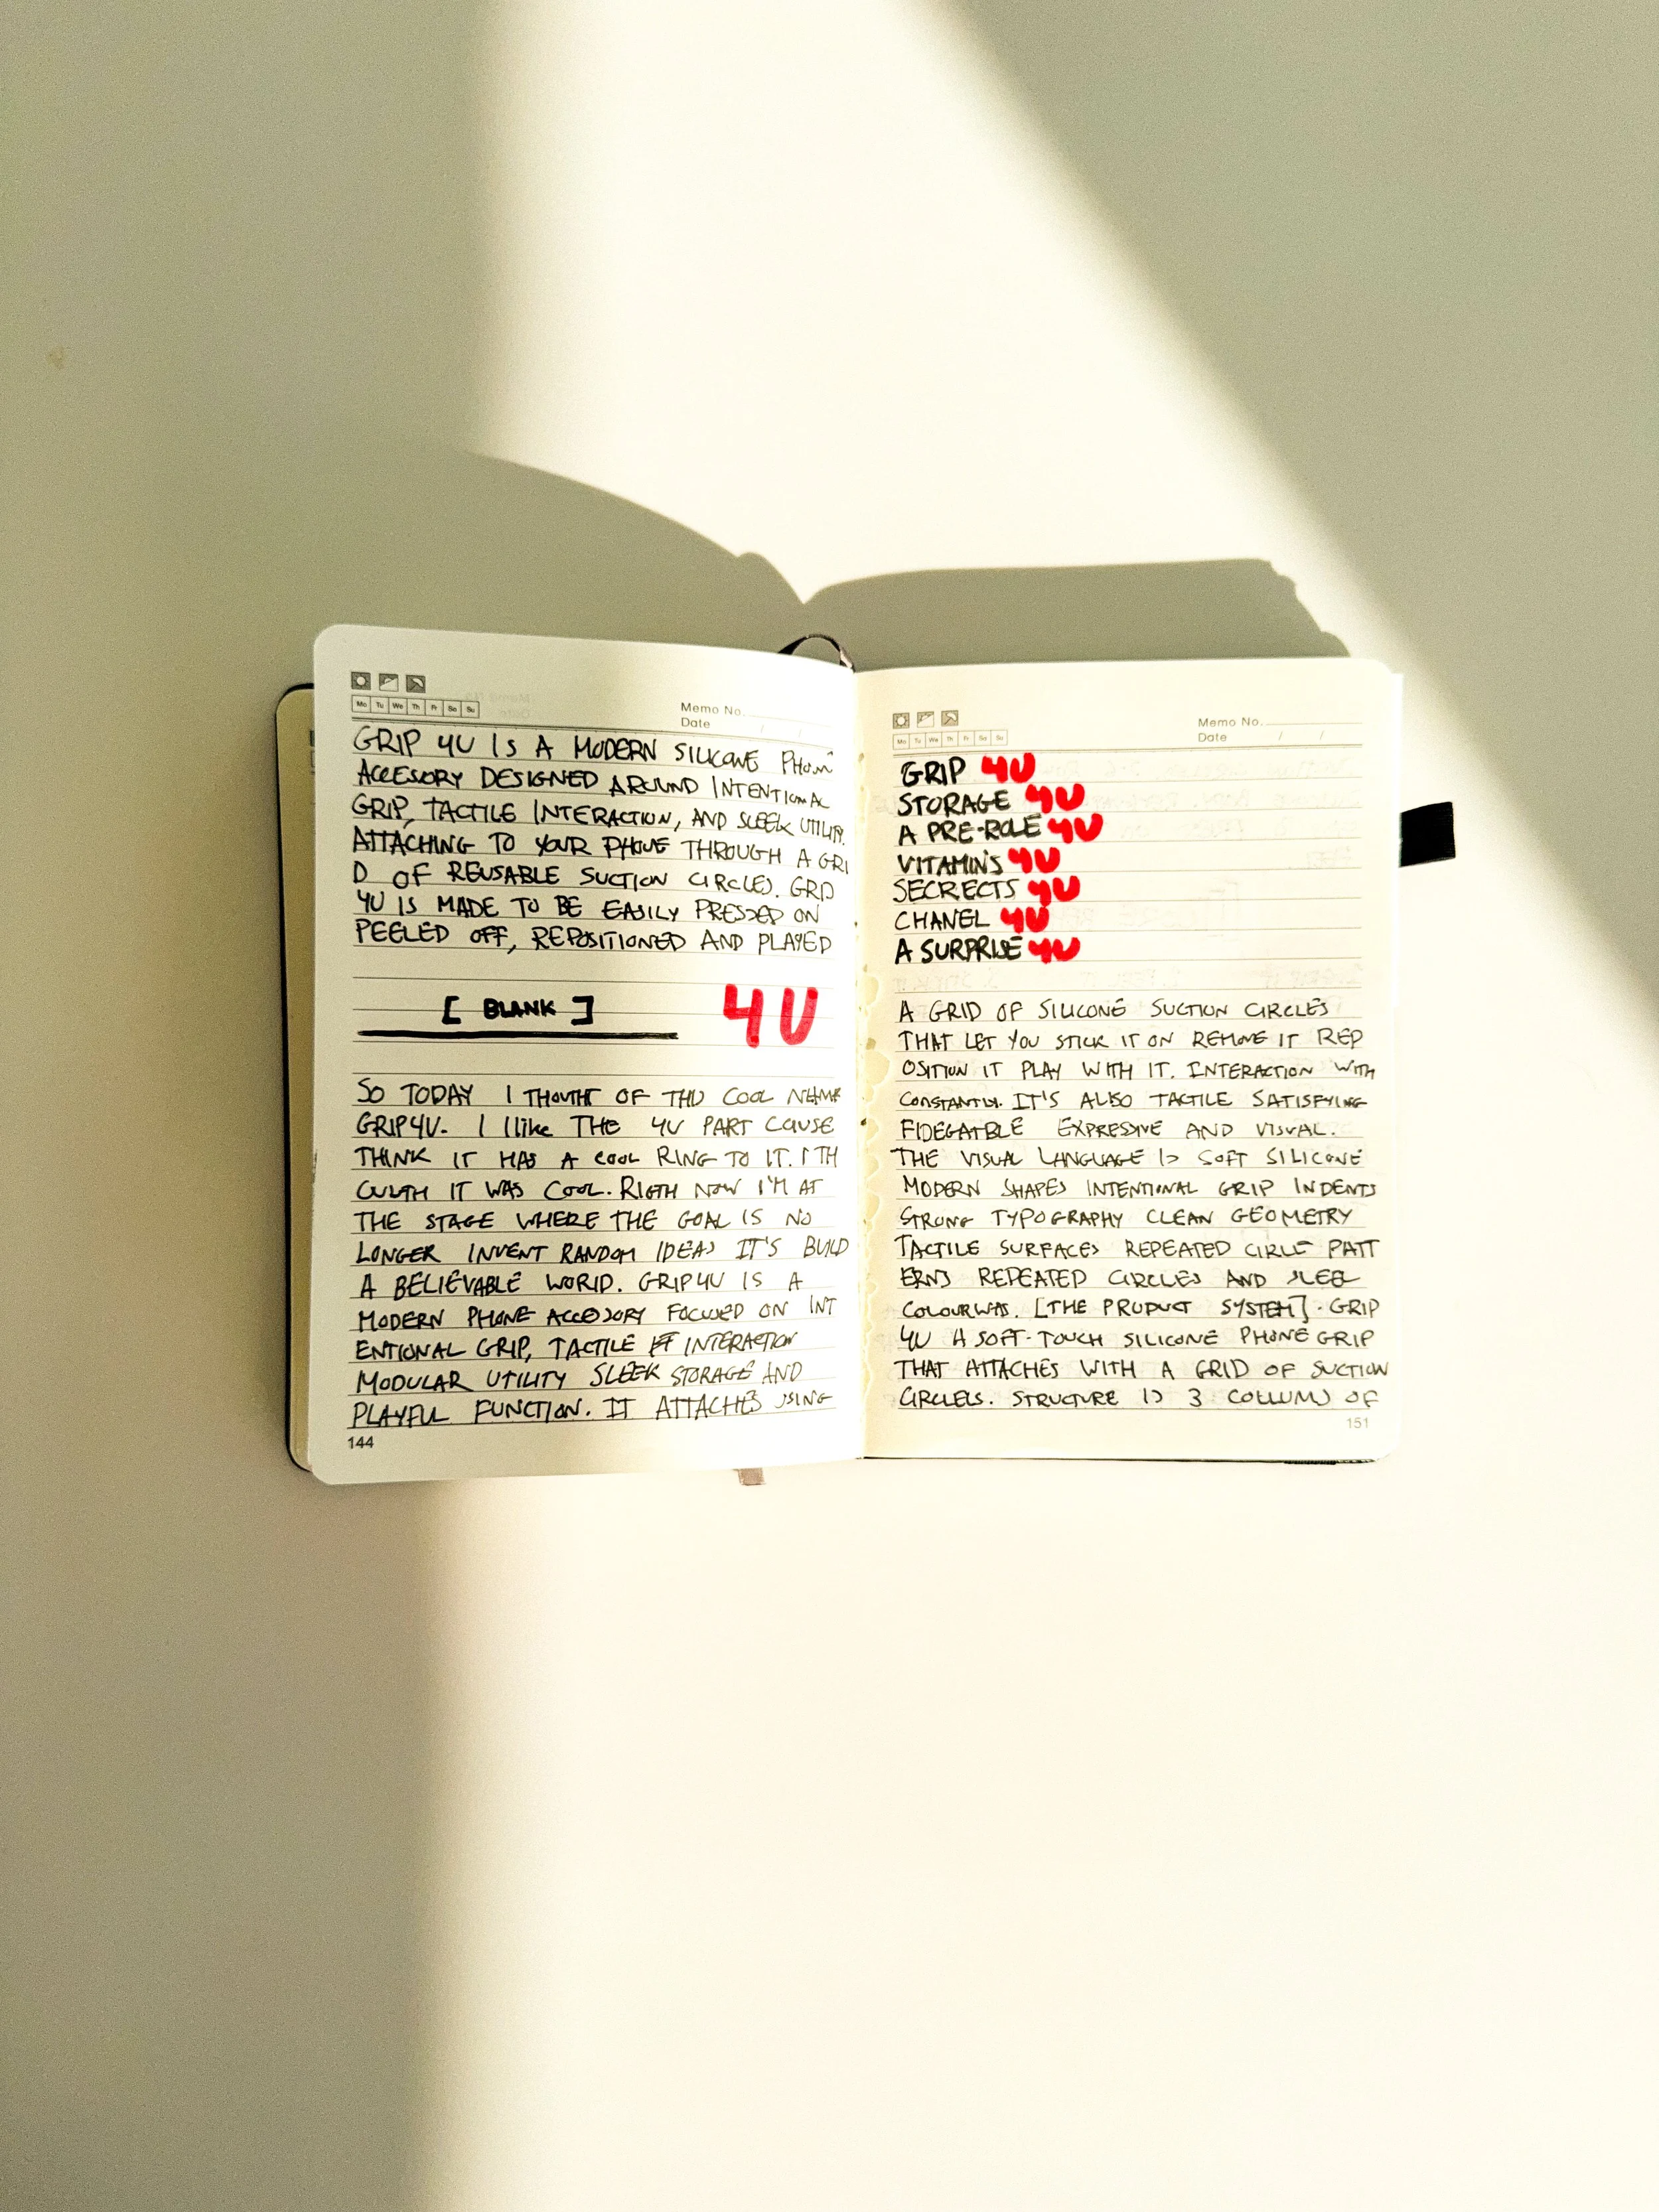 Mo Tu We Th Fr Sa Su
Memo No.
Date / /
GRIP 4U IS A MODERN SILICONE PHON
ACCESORY DESIGNED AROUND INTENTIONAL
GRIP, TACTILE INTERACTION, AND SLEEK UTILITY.
ATTACHING TO YOUR PHONE THROUGH A GRI
D OF REUSABLE SUCTION CIRCLES. GRIP
4U IS MADE TO BE EASILY PRESSED ON
PEELED OFF, REPOSITIONED AND PLAYED
[ BLANK ] 4U
SO TODAY I THOUTHT OF THIS COOL NAME
GRIP4U. I llike THE 4U PART CAUSE
THINK IT HAS A COOL RING TO IT. I TH
OUGTH IT WAS COOL. RIGTH NOW I'M AT
THE STAGE WHERE THE GOAL IS NO
LONGER INVENT RANDOM IDEAS IT'S BUILD
A BELIEVABLE WORLD. GRIP4U IS A
MODERN PHONE ACCESSORY FOCUSED ON INT
ENTIONAL GRIP, TACTILE INTERACTION
MODULAR UTILITY SLEEK STORAGE AND
PLAYFUL FUNCTION. IT ATTACHES USING
144
Mo Tu We Th Fr Sa Su
Memo No.
Date / /
GRIP 4U
STORAGE 4U
A PRE-ROLE 4U
VITAMINS 4U
SECRECTS 4U
CHANEL 4U
A SURPRISE 4U
A GRID OF SILICONE SUCTION CIRCLES
THAT LET YOU STICK IT ON REMOVE IT REP
OSITION IT PLAY WITH IT. INTERACTION WITH
CONSTANTLY. IT'S ALSO TACTILE SATISFYING
FIDEGATBLE EXPRESSIVE AND VISUAL.
THE VISUAL LANGUAGE IS SOFT SILICONE
MODERN SHAPES INTENTIONAL GRIP INDENTS
STRONG TYPOGRAPHY CLEAN GEOMETRY
TACTILE SURFACES REPEATED CIRLE PATT
ERNS REPEATED CIRCLES AND SLEEK
COLOURWAS. [THE PRODUCT SYSTEM]. GRIP
4U A SOFT-TOUCH SILICONE PHONE GRIP
THAT ATTACHES WITH A GRID OF SUCTION
CIRCLELS. STRUCTURE IS 3 COLLUMS OF
151